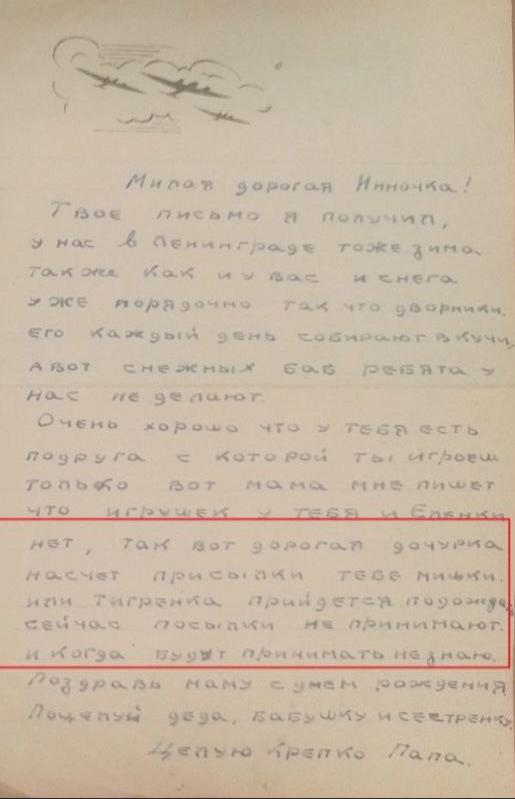 Милая дорогая Инночка!
Твое письмо я получил,
у нас в Ленинграде тоже зима
так же как и у вас и снега
уже порядочно так что дворники
его каждый день собирают в кучи,
а вот снежных баб ребята у
нас не делают.
Очень хорошо что у тебя есть
подруга с которой ты играеш
только вот мама мне пишет
что игрушек у тебя и Еленки
нет, так вот дорогая дочурка
насчет присылки тебе мишки.
или тигренка прийдется
сейчас посылки не принимают.
и когда будут принимать не знаю.
Поздравь маму с днем рождения
Поцелуй деда, бабушку и сестренку.
Целую крепко Папа.